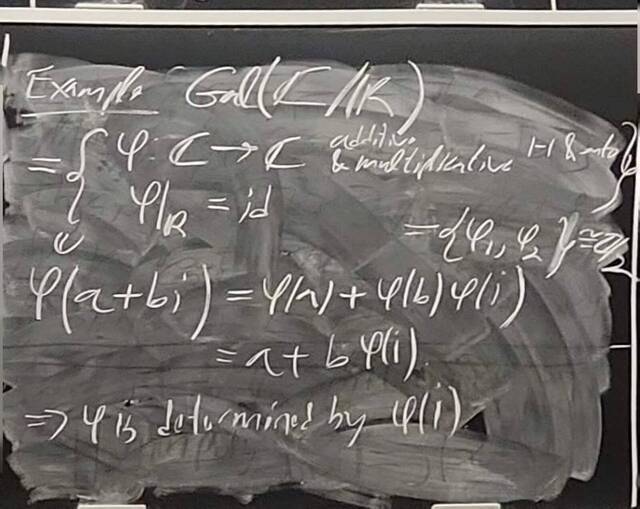 Example Gal(ℂ/ℝ)
= { φ: ℂ → ℂ additive & multiplicative 1-1 & onto
φ|ℝ = id }
= {φ₁, φ₂} ≅ ℤ/2
φ(a+bi) = φ(a) + φ(b)φ(i)
= a + b φ(i)
⇒ φ is determined by φ(i)